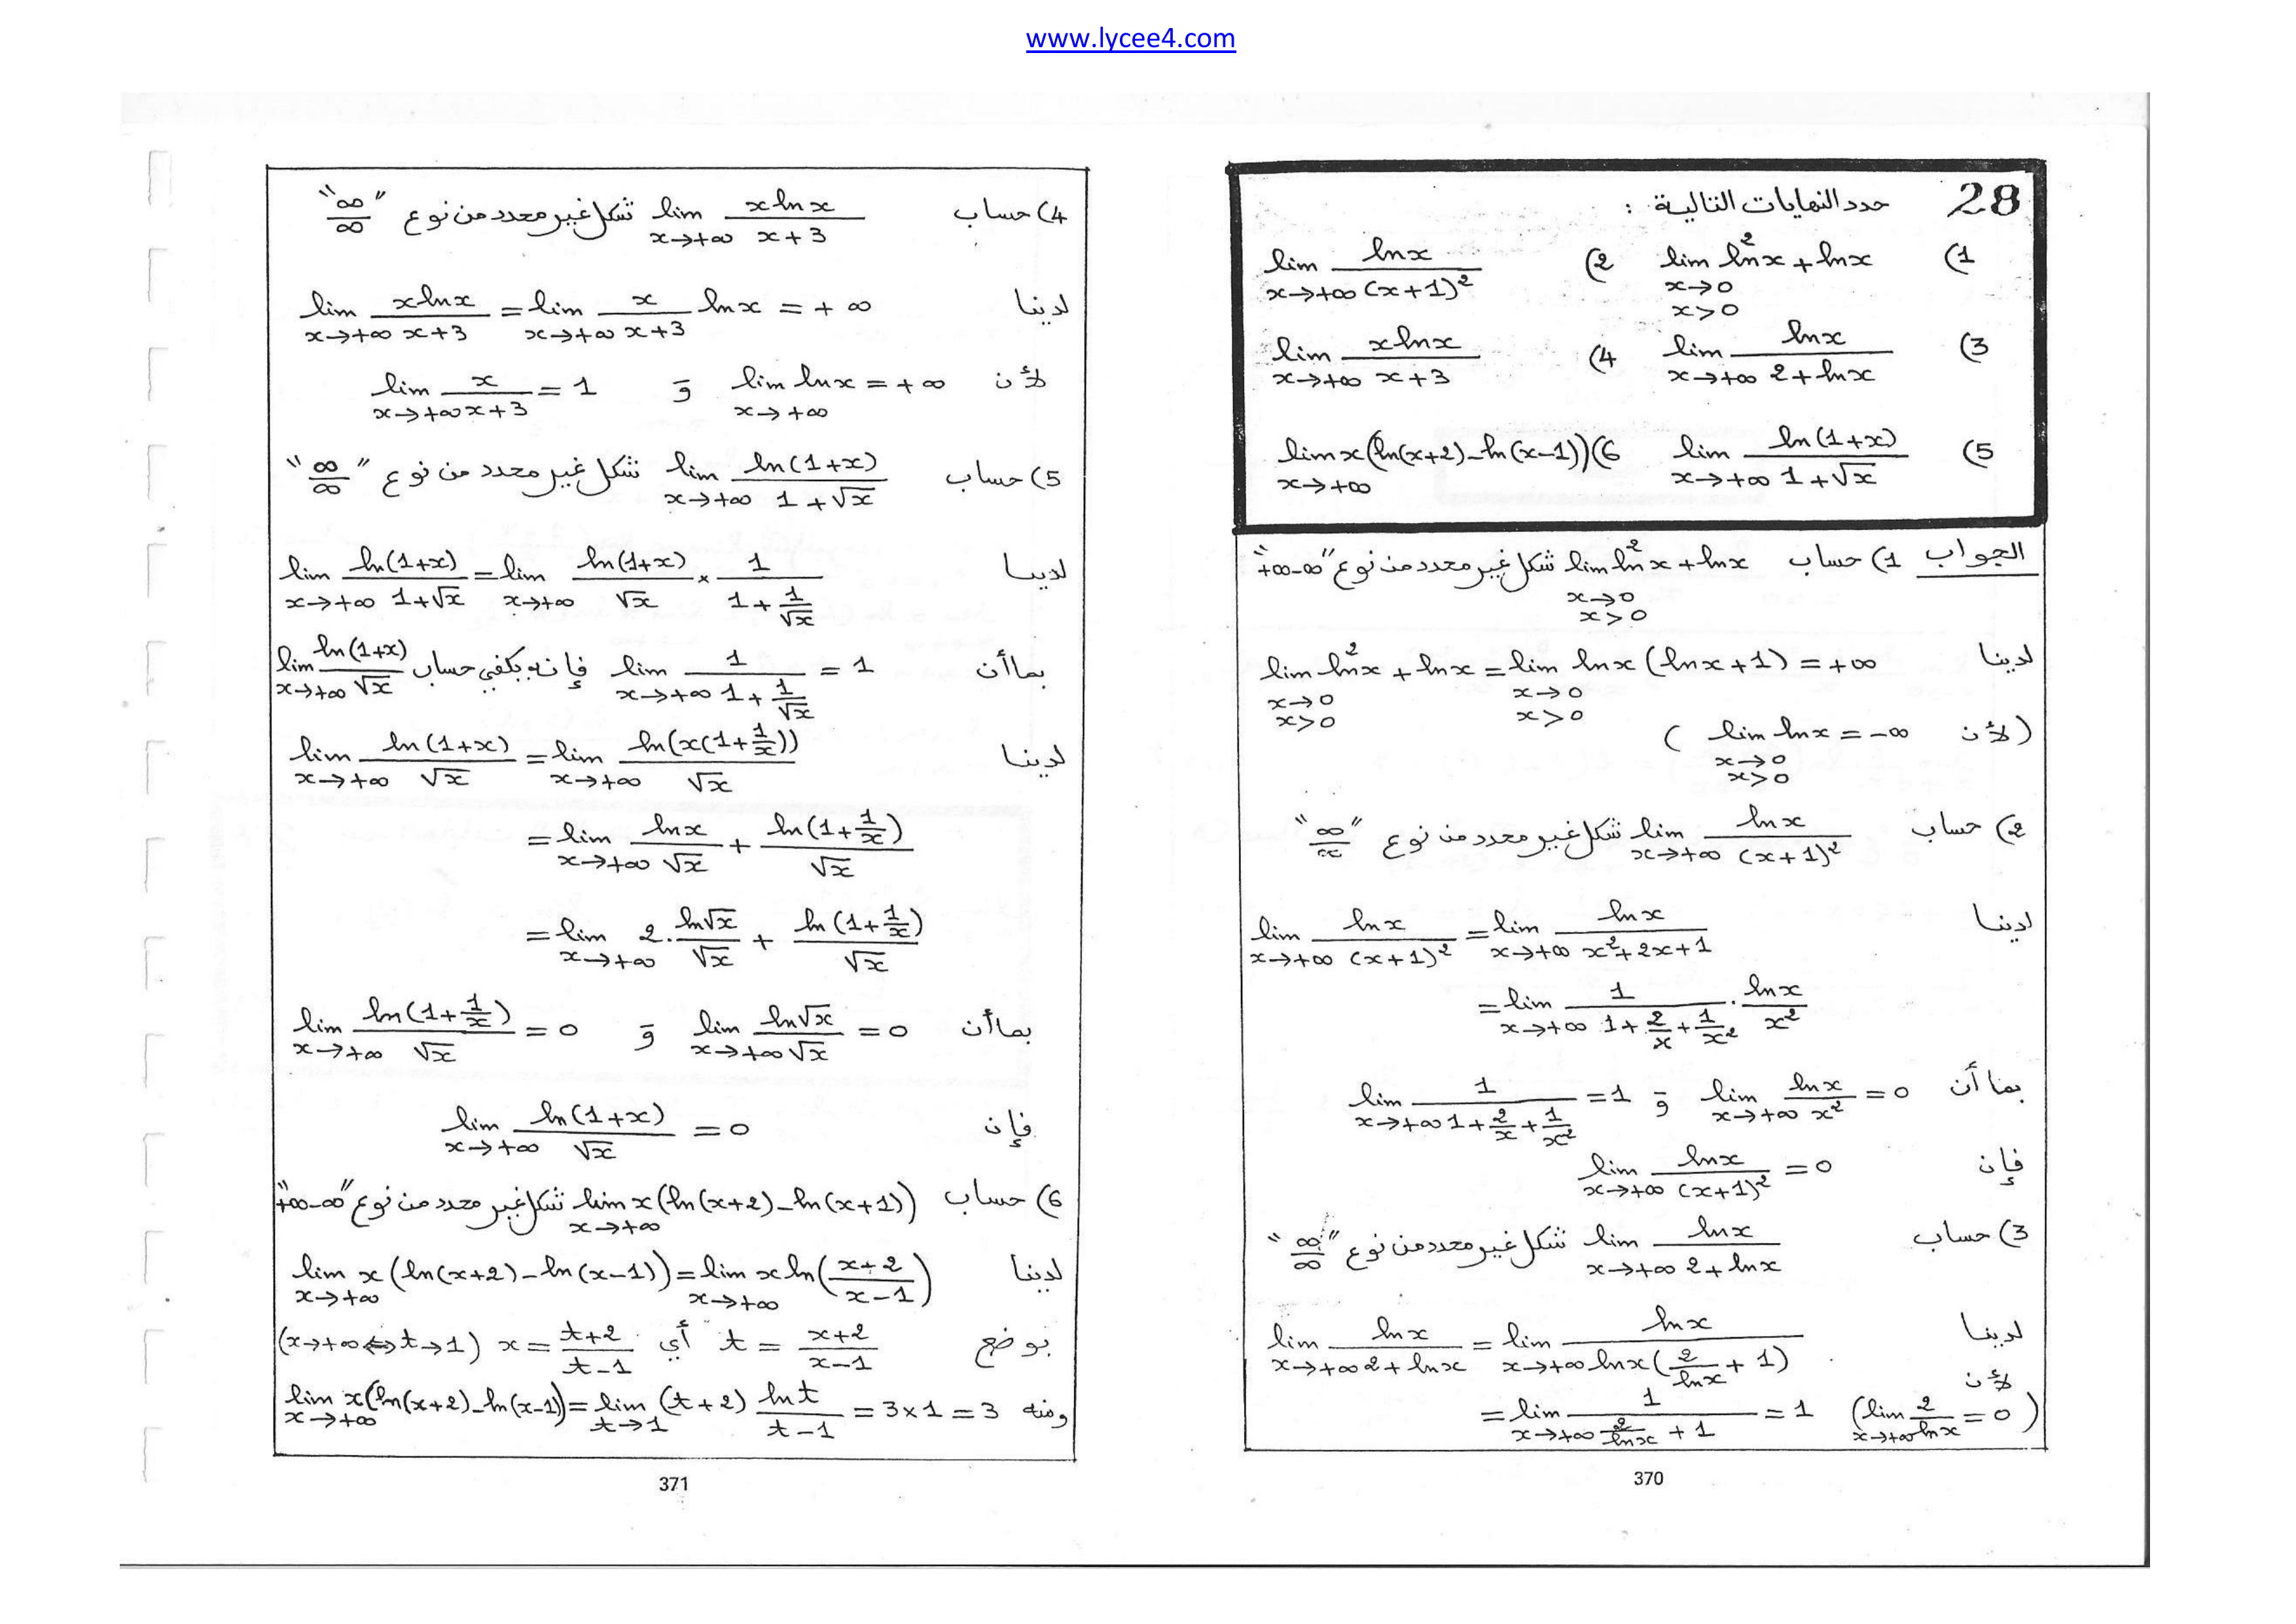 www.lycee4.com
28 حدد النهايات التالية :
1) lim_{x→0, x>0} ln²x + lnx   2) lim_{x→+∞} lnx/(x+1)²
3) lim_{x→+∞} lnx/(2+lnx)   4) lim_{x→+∞} xlnx/(x+3)
5) lim_{x→+∞} ln(1+x)/(1+√x)   6) lim_{x→+∞} x(ln(x+2)-ln(x-1))
الجواب 1) حساب lim_{x→0, x>0} ln²x + lnx شكل غير محدد من نوع "+∞-∞"
لدينا lim_{x→0, x>0} ln²x + lnx = lim_{x→0, x>0} lnx (lnx+1) = +∞
(لأن lim_{x→0, x>0} lnx = -∞)
2) حساب lim_{x→+∞} lnx/(x+1)² شكل غير محدد من نوع "∞/∞"
لدينا lim_{x→+∞} lnx/(x+1)² = lim_{x→+∞} lnx/(x²+2x+1)
= lim_{x→+∞} 1/(1+2/x+1/x²) . lnx/x²
بما أن lim_{x→+∞} lnx/x² = 0 و lim_{x→+∞} 1/(1+2/x+1/x²) = 1
فإن lim_{x→+∞} lnx/(x+1)² = 0
3) حساب lim_{x→+∞} lnx/(2+lnx) شكل غير محدد من نوع "∞/∞"
لدينا lim_{x→+∞} lnx/(2+lnx) = lim_{x→+∞} lnx/(lnx(2/lnx + 1))
لأن
= lim_{x→+∞} 1/(2/lnx + 1) = 1 (lim_{x→+∞} 2/lnx = 0)
370
4) حساب lim_{x→+∞} xlnx/(x+3) شكل غير محدد من نوع "∞/∞"
لدينا lim_{x→+∞} xlnx/(x+3) = lim_{x→+∞} x/(x+3) lnx = +∞
لأن lim_{x→+∞} lnx = +∞ و lim_{x→+∞} x/(x+3) = 1
5) حساب lim_{x→+∞} ln(1+x)/(1+√x) شكل غير محدد من نوع "∞/∞"
لدينا lim_{x→+∞} ln(1+x)/(1+√x) = lim_{x→+∞} ln(1+x)/√x × 1/(1+1/√x)
بما أن lim_{x→+∞} 1/(1+1/√x) = 1 فإنه يكفي حساب lim_{x→+∞} ln(1+x)/√x
لدينا lim_{x→+∞} ln(1+x)/√x = lim_{x→+∞} ln(x(1+1/x))/√x
= lim_{x→+∞} lnx/√x + ln(1+1/x)/√x
= lim_{x→+∞} 2.ln√x/√x + ln(1+1/x)/√x
بما أن lim_{x→+∞} ln√x/√x = 0 و lim_{x→+∞} ln(1+1/x)/√x = 0
فإن lim_{x→+∞} ln(1+x)/√x = 0
6) حساب lim_{x→+∞} x(ln(x+2)-ln(x+1)) شكل غير محدد من نوع "+∞-∞"
لدينا lim_{x→+∞} x(ln(x+2)-ln(x-1)) = lim_{x→+∞} xln((x+2)/(x-1))
بوضع t = (x+2)/(x-1) أي x = (t+2)/(t-1) (x→+∞⇔t→1)
ومنه lim_{x→+∞} x(ln(x+2)-ln(x-1)) = lim_{t→1} (t+2) lnt/(t-1) = 3×1 = 3
371